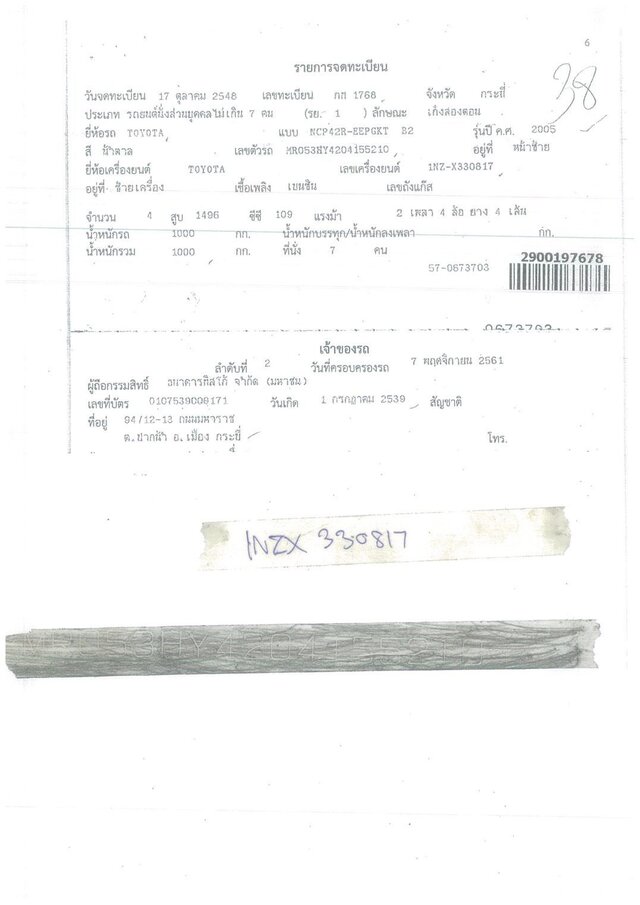 6
38
รายการจดทะเบียน
วันจดทะเบียน 17 ตุลาคม 2548 เลขทะเบียน กก 1768 จังหวัด กระบี่
ประเภท รถยนต์นั่งส่วนบุคคลไม่เกิน 7 คน (รย. 1 ) ลักษณะ เก๋งสองตอน
ยี่ห้อรถ TOYOTA แบบ NCP42R-EEPGKT B2 รุ่นปี ค.ศ. 2005
สี น้ำตาล เลขตัวรถ MR053HY4204155210 อยู่ที่ หน้าซ้าย
ยี่ห้อเครื่องยนต์ TOYOTA เลขเครื่องยนต์ 1NZ-X330817
อยู่ที่ ซ้ายเครื่อง เชื้อเพลิง เบนซิน เลขถังแก๊ส
จำนวน 4 สูบ 1496 ซีซี 109 แรงม้า 2 เพลา 4 ล้อ ยาง 4 เส้น
น้ำหนักรถ 1000 กก. น้ำหนักบรรทุก/น้ำหนักลงเพลา กก.
น้ำหนักรวม 1000 กก. ที่นั่ง 7 คน
2900197678
57-0673703
0673703
เจ้าของรถ
ลำดับที่ 2 วันที่ครอบครองรถ 7 พฤศจิกายน 2561
ผู้ถือกรรมสิทธิ์ ธนาคารทิสโก้ จำกัด (มหาชน)
เลขที่บัตร 0107539000171 วันเกิด 1 กรกฎาคม 2539 สัญชาติ
ที่อยู่ 94/12-13 ถนนมหาราช
ต.ปากน้ำ อ.เมือง กระบี่ โทร.
1NZX 330817